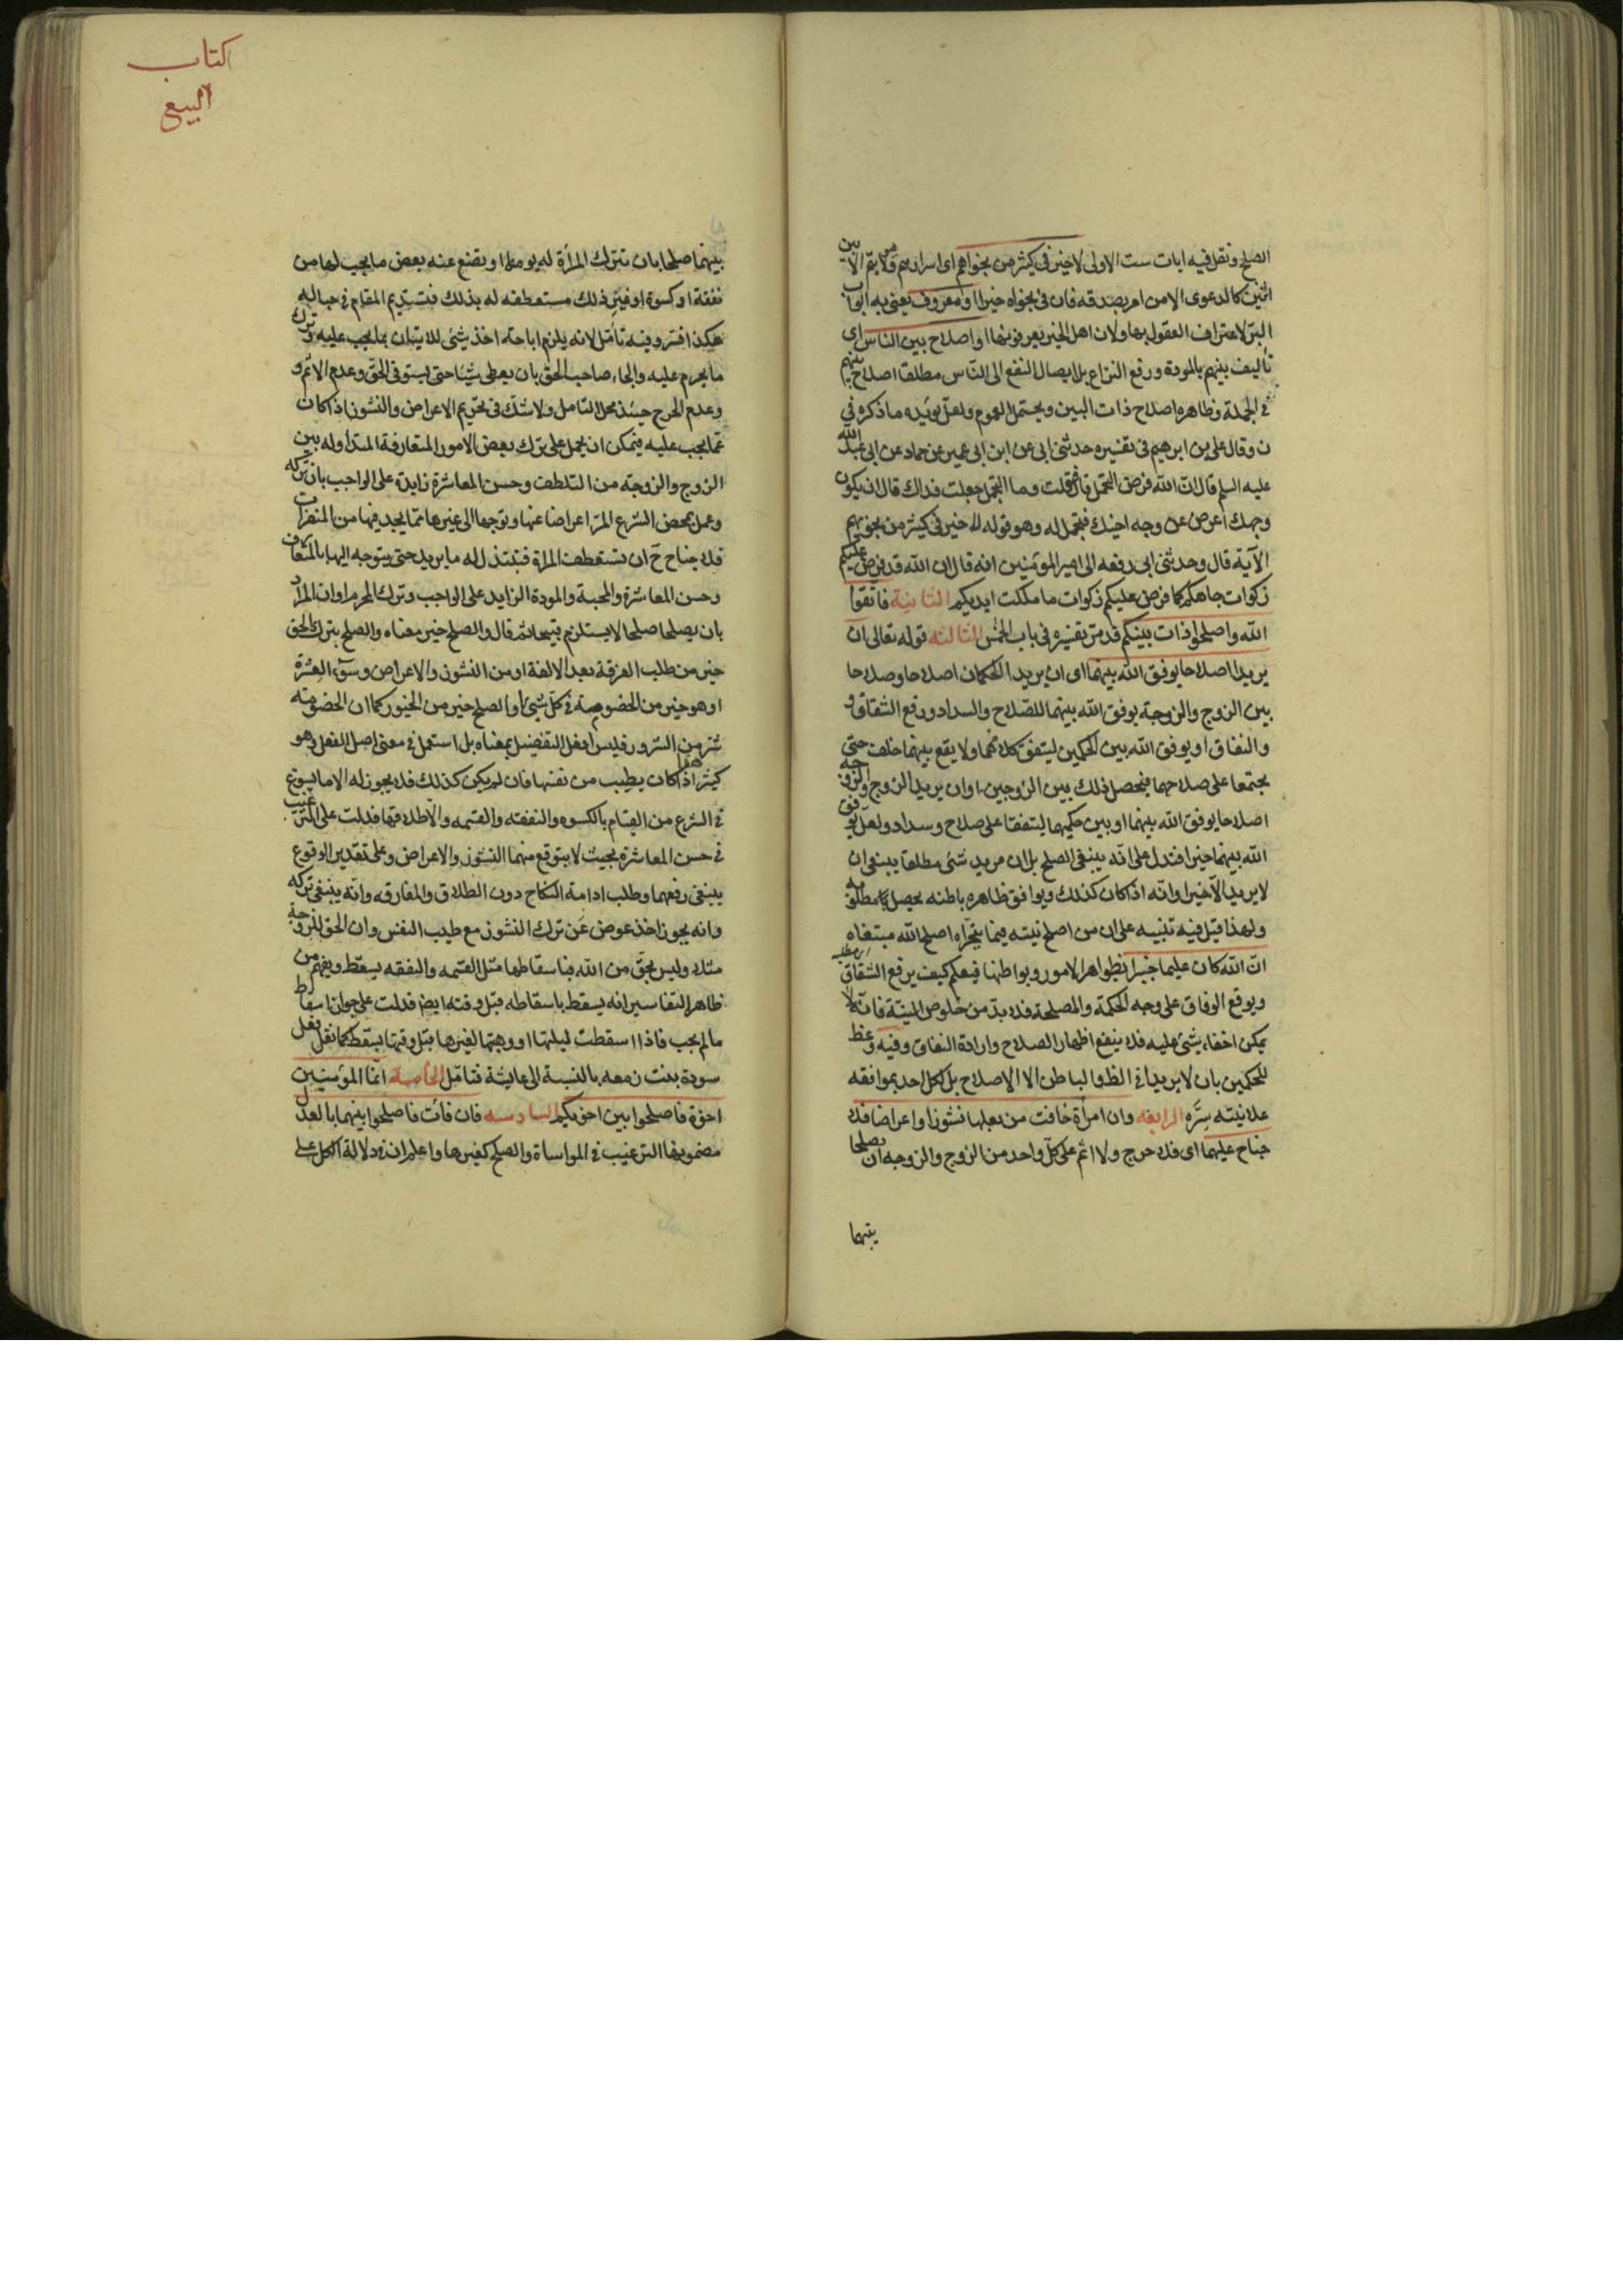 الصلح ونقل فيه ايات ست الاولى لا خير في كثير من نجواهم اى اسرارهم ولا يتم الا بين
اثنين كالدعوى الا من امر بصدقة فان في نجواه خيرا او معروف يعنى به ابواب
البر لاعتراف العقول بها ولان اهل الخير يعرفونها او اصلاح بين الناس اى
تأليف بينهم بالمودة ورفع النزاع بلا يصال النفع الى الناس مطلقا اصلاح بينهم
في الجملة وظاهره اصلاح ذات البين ويحتمل العموم ولعل يؤيده ما ذكره في
ن وقال على بن ابرهيم في تفسيره حدثنى ابى عن ابن ابى عمير عن حماد عن ابى عبد الله
عليه السلم قال ان الله فرض التحمل قال فقلت وما التحمل جعلت فداك قال ان يكون
وجهك اعرض عن وجه اخيك فتحمل له وهو قوله لا خير في كثير من نجويهم
الآية قال وحدثنى ابى رفعه الى امير المؤمنين انه قال ان الله قد فرض عليكم
زكوات جاهكم كما فرض عليكم زكوات ما ملكت ايديكم الثانية فاتقوا
الله واصلحوا ذات بينكم قد مر تفسيره في باب الخمس الثالثه قوله تعالى ان
يريدا اصلاحا يوفق الله بينهما اى ان يريد الحكمان اصلاحا وصلاحا
بين الزوج والزوجة يوفق الله بينهما للصلاح والسداد ورفع الشقاق و
والنفاق او يوفق الله بين الحكمين ليتفق كلامهما ولا يقع بينهما خلف حتى
يجتمعا على صلاحهما فيحصل ذلك بين الزوجين او ان يريد الزوج والزوجه
اصلاحا يوفق الله بينهما او بين حكميهما ليتفقا على صلاح وسداد ولعل يوفق
الله بينهما خيرا فتدل على انه ينبغى الصلح بل ان مريد شئ مطلقا ينبغى ان
لا يريد الا خيرا وانه اذا كان كذلك ويوافق ظاهره باطنه يحصل مطلوبه
ولهذا قيل فيه تنبيه على ان من اصلح نيته فيما يتحراه اصلح الله مبتغاه
ان الله كان عليما خبيرا بظواهر الامور وبواطنها فيعلم كيف يرفع الشقاق
ويوقع الوفاق على وجه الحكمة والمصلحة فلا بد من خلوص النية فانه لا
يمكن اخفاء شئ عليه فلا ينفع اظهار الصلاح وارادة النفاق وفيه وعظ
للحكمين بان لا يريدا في الظ والباطن الا الاصلاح بل لكل احد بموافقه
علانيته سره الرابعه وان امرأة خافت من بعلها نشوزا او اعراضا فلا
جناح عليهما اى فلا حرج ولا اثم على كل واحد من الزوج والزوجه ان يصلحا
بينهما
كتاب
البيع
بينهما صلحا بان تترك المرأة له يومها او تضع عنه بعض ما يجب لها من
نفقة او كسوة او غير ذلك مستعطفه له بذلك فتستديم المقام في حباله
هكذا فسر وفيه تأمل لانه يلزم اباحة اخذ شئ للاتيان بما يجب عليه وترك
ما يحرم عليه والجاء صاحب الحق بان يعطى شيئا حتى يستوفى الحق وعدم الاثم و
وعدم الحرج حينئذ محل التامل ولا شك في تحريم الاعراض والنشوز اذا كان
عما يجب عليه فيمكن ان يحمل على ترك بعض الامور المتعارفة المتداوله بين
الزوج والزوجة من التلطف وحسن المعاشرة زايدة على الواجب بان تركه
وعمل بمحض الشرع المر اعراضا عنها وتوجها الى غيرها مما يجد فيها من المنفرات
فلا جناح ح ان تستعطف المراة فتبتذل له ما يريد حتى يتوجه اليها بالمتعارف
وحسن المعاشرة والمحبة والمودة الزايد على الواجب وترك المحرم او ان المراد
بان يصلحا صلحا لا يستلزم قبيحا ثم قال والصلح خير معناه والصلح بترك الحق
خير من طلب الفرقة بعد الالفة او من النشوز والاعراض وسوء العشرة
او هو خير من الخصومة في كل شئ او الصلح خير من الخيور كما ان الخصومة
شر من الشرور فليس افعل التفضيل بمعناه بل استعمل في معنى اصل الفعل وهو
كثير هذا اذا كان بطيب من نفسها فان لم يكن كذلك فلا يجوز له الا ما يسوغ
في الشرع من القيام بالكسوه والنفقه والقسمه والا طلاقها فدلت على الترغيب
في حسن المعاشرة بحيث لا يتوقع منهما النشوز والاعراض وعلى تقدير الوقوع
ينبغى رفعهما وطلب ادامة النكاح دون الطلاق والمفارقه وانه ينبغى تركه
وانه يجوز اخذ عوض عن ترك النشوز مع طيب النفس وان الحق للزوجة
مثلا وليس بحق من الله فباسقاطها مثل القسمه والنفقه يسقط ويفهم من
ظاهر التفاسير انه يسقط باسقاطه قبل وقته ايضا فدلت على جواز اسقاط
ما لم يجب فاذا اسقطت ليلتها او وهبتها لغيرها قبل وقتها يسقط كما نقل فعل
سودة بنت زمعه بالنسبة الى عايشة فتامل الخامسة انما المؤمنين
اخوة فاصلحوا بين اخويكم السادسه فان فائت فاصلحوا بينهما بالعدل
مضمونها الترغيب في المواساة والصلح كغيرها واعلم ان في دلالة الكل على